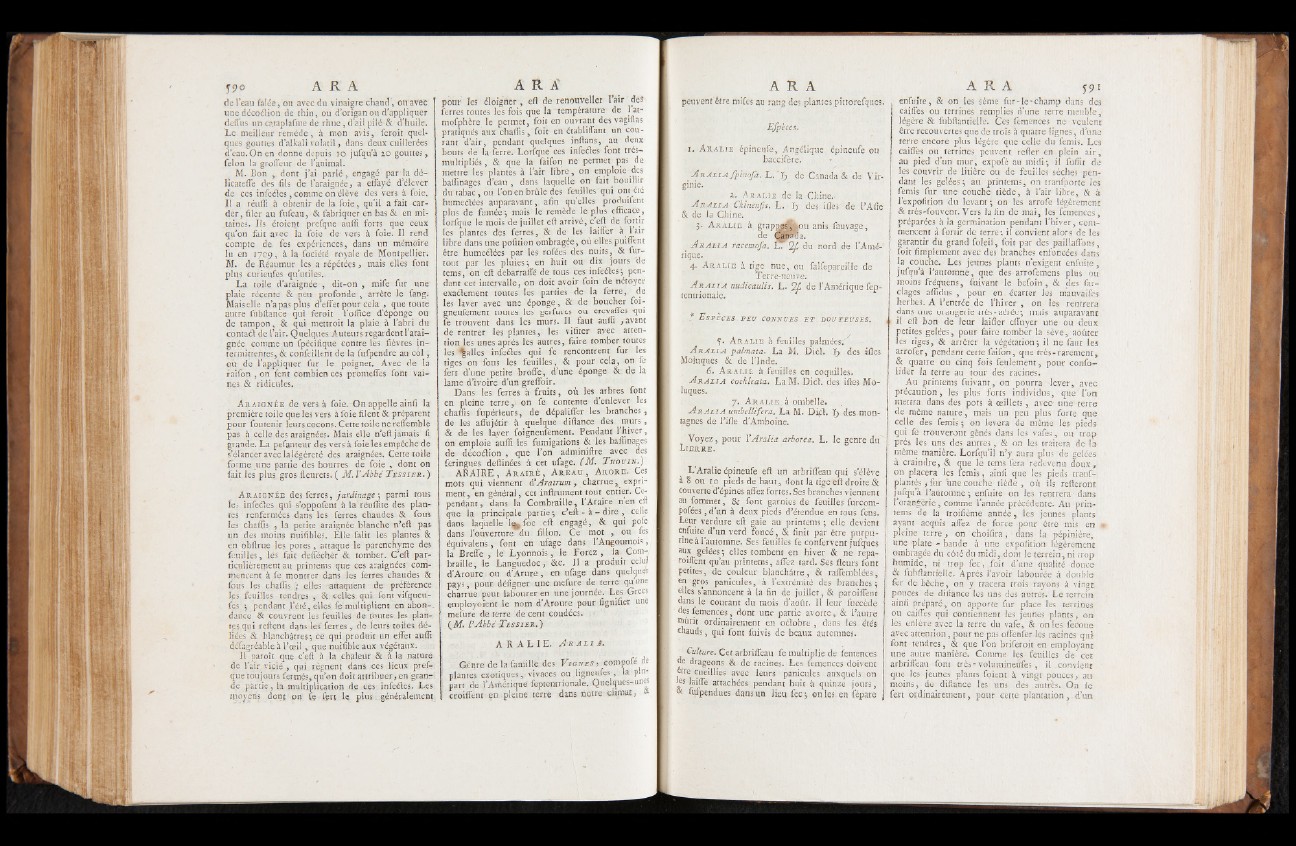 590 A R A
de l'eau salée, ou avec du vinaigre chaud, ou avec
une décoction de thin, ou d'origan ou d'appliquer
dessus un cataplasme de rhue, d'ail pilé & d'huile.
Le meilleur remède, à mon avis, seroit quel-
ques gouttes d'alkali volatil, dans deux cuillerées
d'eau. On en donne depuis 10 jusqu'à 20 gouttes,
selon la grosseur de l'animal.
M. Bon, dont j'ai parlé, engagé par la dé-
licatesse des fils de l'araignée, a essayé d'élever
de ces insectes, comme on élève des vers à soie.
Il a réussi à obtenir de la soie, qu'il a fait car-
der, filer au fuseau, & fabriquer en bas & en mi-
taines. Ils étoient presque aussi forts que ceux
qu'on fait avec la soie de vers à soie. Il rend
compte de ses expériences, dans un mémoire
lu en 1709, à la société royale de Montpellier.
M. de Réaumur les a répétées, mais elles sont
plus curieuses qu'utiles.
La toile d'araignée, dit-on, mise sur une
plaie récente & peu profonde, arrête le sang.
Mais elle n'a pas plus d'effet pour cela, que toute
autre substance qui feroit l'office d'éponge ou
de tampon, & qui mettroit la plaie à l'abri du
contact de l'air. Quelques Auteurs regardent l'arai-
gnée comme un spécifique contre les fièvres in-
termittentes, & conseillent de la suspendre au col,
ou de l'appliquer sur le poignet. Avec de la
raison, on sent combien ces promesses sont vai-
nes & ridicules.
ARAIGNÉE de vers à soie. On appelle ainsi la
première toile que les vers à soie filent & préparent
pour soutenir leurs cocons. Cette toile ne ressemble
pas à celle des araignées. Mais elle n'est jamais si
grande. La pesanteur des vers à soie les empêche de
s'élancer avec la légéreté des araignées. Cette toile
forme une partie des bourres de soie, dont on
fait les plus gros fleurets. ( M. l'Abbé TESSIER. )
ARAIGNÉE des serres, jardinage; parmi tous
les insectes qui s'opposent à la réussite des plan-
tes renfermées dans les serres chaudes & sous
les chassis, la petite araignée blanche n'est pas
un des moins nuisibles. Elle salit les plantes &
en obstrue les pores, attaque le parenchyme des
feuilles, les fait dessécher & tomber. C'est par-
ticulierement au printems que ces araignées com-
mencent à se montrer dans les serres chaudes &
sous les chassis; elles attaquent de préférence
les feuilles tendres, & celles qui sont visqueu-
ses; pendant l'été, elles se multiplient en abon-
dance & couvrent les feuilles de toutes les plan-
tes qui restent dans les serres, de leurs toiles dé-
liées & blanchâtres; ce qui produit un effet aussi
désagréable à l'œil, que nuisible aux végétaux.
Il paroît que c'est à la chaleur & à la nature
de l'air vicié, qui règnent dans ces lieux pres-
que toujours fermés, qu'on doit attribuer, en gran-
de partie, la multiplication de ces insectes. Les
moyens dont on se sert le plus généralement
A R A
pour les éloigner, est de renouveller l'air des
serres toutes les fois que la température de l'at-
mosphère le permet, soit en ouvrant des vagistas
pratiqués aux chassis, soit en établissant un cou-
rant d'air, pendant quelques instans, au deux
bouts de la serre. Lorsque ces insectes sont très-
multipliés, & que la saison ne permet pas de
mettre les plantes à l'air libre, on emploie des
bassinages d'eau, dans laquelle on fait bouillir
du tabac, ou l'on en brûle des feuilles qui ont été
humectées auparavant, afin qu'elles produisent
plus de fumée; mais le remède le plus efficace,
lorsque le mois de juillet est arrivé, c'est de sortir
les plantes des serres, & de les laisser à l'air
libre dans une position ombragée, où elles puissent
être humectées par les rosées des nuits, & sur-
tout par les pluies; en huit ou dix jours de
tems, on est débarrassé de tous ces insectes; pen-
dant cet intervalle, on doit avoir soin de nétoyer
exactement toutes les parties de la serre, de
les laver avec une éponge, & de boucher soi-
gneusement toutes les gersures ou crevasses qui
se trouvent dans les murs. Il faut aussi, avant
de rentrer les plantes, les visiter avec atten-
tion les unes après les autres, faire tomber toutes
les galles insectes qui se rencontrent sur les
tiges ou sous les feuilles, & pour cela, on se
sert d'une petite brosse, d'une éponge & de la
lame d'ivoire d'un greffoir.
Dans les serres à fruits, où les arbres sont
en pleine terre, on se contente d'enlever les
chassis supérieurs, de dépalisser les branches,
de les assujétir à quelque distance des murs,
& de les laver soigneusement. Pendant l'hiver,
on emploie aussi les fumigations & les bassinages
de décoction, que l'on administre avec des
seringues destinées à cet usage. (M. THOUIN.)
ARAIRE, ARAIRÉ, AREAU, ARORE. Ces
mots qui viennent d'Aratrum, charrue, expri-
ment, en général, cet instrument tout entier. Ce-
pendant, dans la Combraille, l'Araire n'en est
que la principale partie; c'est-à-dire, celle
dans laquelle le soc est engagé, & qui pose
dans l'ouverture du sillon. Ce mot, ou ses
équivalens, sont en usage dans l'Angoumois,
la Bresse, le Lyonnois, le Forez, la Com-
braille, le Languedoc, &c. Il a produit celui
d'Aroure ou d'Arure, en usage dans quelques
pays, pour désigner une mesure de terre qu'une
charrue peut labourer en une journée. Les Grecs
employoient le nom d'Aroure pour signifier une
mesure de terre de cent coudées.
(M. l'Abbé TESSIER.)
A R A L I E. ARALIA.
Génre de la famille des VIGNES; composé de
plantes exotiques, vivaces ou ligneuses, la plu-
part de l'Amérique septentrionale. Quelques-unes
croissent en pleine terre dans notre climat, &
A R A
peuvent être mises au rang des plantes pittoresques.
Espèces.
1. ARALIE épineuse, Angélique épineuse ou
baccifère.
ARALIA spinosa. L. ♄ de Canada & de Vir-
ginie.
2. ARALIE de la Chine.
ARALIA Chinensis. L. ♄ des isles de l'Asie
& de la Chine.
3. ARALIE à grappes, ou anis sauvage,
de Canada.
ARALIA racemosa. L. ♃ du nord de l'Amé-
rique.
4. ARALIE à tige nue, ou salsepareille de
Terre-neuve.
ARALIA nudicaulis. L. ♃ de l'Amérique sep-
tentrionale.
* ESPÈCES PEU CONNUES ET DOUTEUSES.
5. ARALIE à feuilles palmées.
ARALIA palmata. La M. Dict. ♄ des isles
Moluques & de l'Inde.
6. ARALIE à feuilles en coquilles.
ARALIA cochleata. La M. Dict. des isles Mo-
luques.
7. ARALIE à ombelle.
ARALIA umbellifera. La M. Dict. ♄ des mon-
tagnes de l'isle d'Amboine.
Voyez, pour l'Aralia arborea. L. le genre du
LIERRE.
L'Aralie épineuse est un arbrisseau qui s'élève
à 8 ou 10 pieds de haut, dont la tige est droite &
couverte d'épines assez fortes. Ses branches viennent
au sommet, & sont garnies de feuilles surcom-
posées, d'un à deux pieds d'étendue en tous sens.
Leur verdure est gaie au printems; elle devient
ensuite d'un verd foncé, & finit par être purpu-
rine à l'automne. Ses feuilles se conservent jusques
aux gelées; elles tombent en hiver & ne repa-
roissent qu'au printems, assez tard. Ses fleurs sont
petites, de couleur blanchâtre, & rassemblées,
en gros panicules, à l'extrémité des branches;
elles s'annoncent à la fin de juillet, & paroissent
dans le courant du mois d'août. Il leur succède
des semences, dont une partie avorte, & l'autre
mûrit ordinairement en octobre, dans les étés
chauds, qui sont suivis de beaux automnes.
Culture. Cet arbrisseau se multiplie de semences
de drageons & de racines. Les semences doivent
être cueillies avec leurs panicules auxquels on
les laisse attachées pendant huit à quinze jours,
& suspendues dans un lieu sec; on les en sépare
A R A 591
ensuite, & on les sème sur-le-champ dans des
caisses ou terrines remplies d'une terre meuble,
légère & substantielle. Ces semences ne veulent
être recouvertes que de trois à quatre lignes, d'une
terre encore plus légère que celle du semis. Les
caisses ou terrines peuvent rester en plein air,
au pied d'un mur, exposé au midi; il suffit de
les couvrir de litière ou de feuilles sèches pen-
dant les gelées; au printems, on transporte les
semis sur une couche tiède, à l'air libre, & à
l'exposition du levant; on les arrose légèrement
& très-souvent. Vers la fin de mai, les semences,
préparées à la germination pendant l'hiver, com-
mencent à sortir de terre; il convient alors de les
garantir du grand soleil, soit par des paillassons,
soit simplement avec des branches enfoncées dans
la couche. Les jeunes plants n'exigent ensuite,
jusqu'à l'automne, que des arrosemens plus ou
moins fréquens, suivant le besoin, & des sar-
clages assidus, pour en écarter les mauvaises
herbes. A l'entrée de l'hiver, on les rentrera
dans une orangerie très-aérée; mais auparavant
il est bon de leur laisser essuyer une ou deux
petites gelées, pour faire tomber la sève, aoûter
les tiges, & arrêter la végétation; il ne faut les
arroser, pendant cette saison, que très-rarement,
& quatre ou cinq fois seulement, pour conso-
lider la terre au tour des racines.
Au printems suivant, on pourra lever, avec
précaution, les plus forts individus, que l'on
mettra dans des pots à œillets, avec une terre
de même nature, mais un peu plus forte que
celle des semis; on levera de même les pieds
qui se trouveront gênés dans les vases, ou trop
près les uns des autres, & on les traitera de la
même manière. Lorsqu'il n'y aura plus de gelées
à craindre, & que le tems sera redevenu doux,
on placera les semis, ainsi que les pieds trans-
plantés, sur une couche tiède, où ils resteront
jusqu'à l'automne; ensuite on les rentrera dans
l'orangerie, comme l'année précédente. Au prin-
tems de la troisième année, les jeunes plants
ayant acquis assez de force pour être mis en
pleine terre, on choisira, dans la pépinière,
une plate-bande à une exposition légèrement
ombragée du côté du midi, dont le terrein, ni trop
humide, ni trop sec, soit d'une qualité douce
& substantielle. Après l'avoir labourée à double
fer de bèche, on y tracera trois rayons à vingt
pouces de distance les uns des autres. Le terrein
ainsi préparé, on apporte sur place les terrines
ou caisses qui contiennent les jeunes plants, on
les enlève avec la terre du vase, & on les secoue
avec attention, pour ne pas offenser les racines qui
sont tendres, & que l'on briseroit en employant
une autre manière. Comme les feuilles de cet
arbrisseau sont très-volumineuses, il convient
que les jeunes plants soient à vingt pouces, au
moins, de distance les uns des autres. On se
sert ordinairement, pour cette plantation, d'un